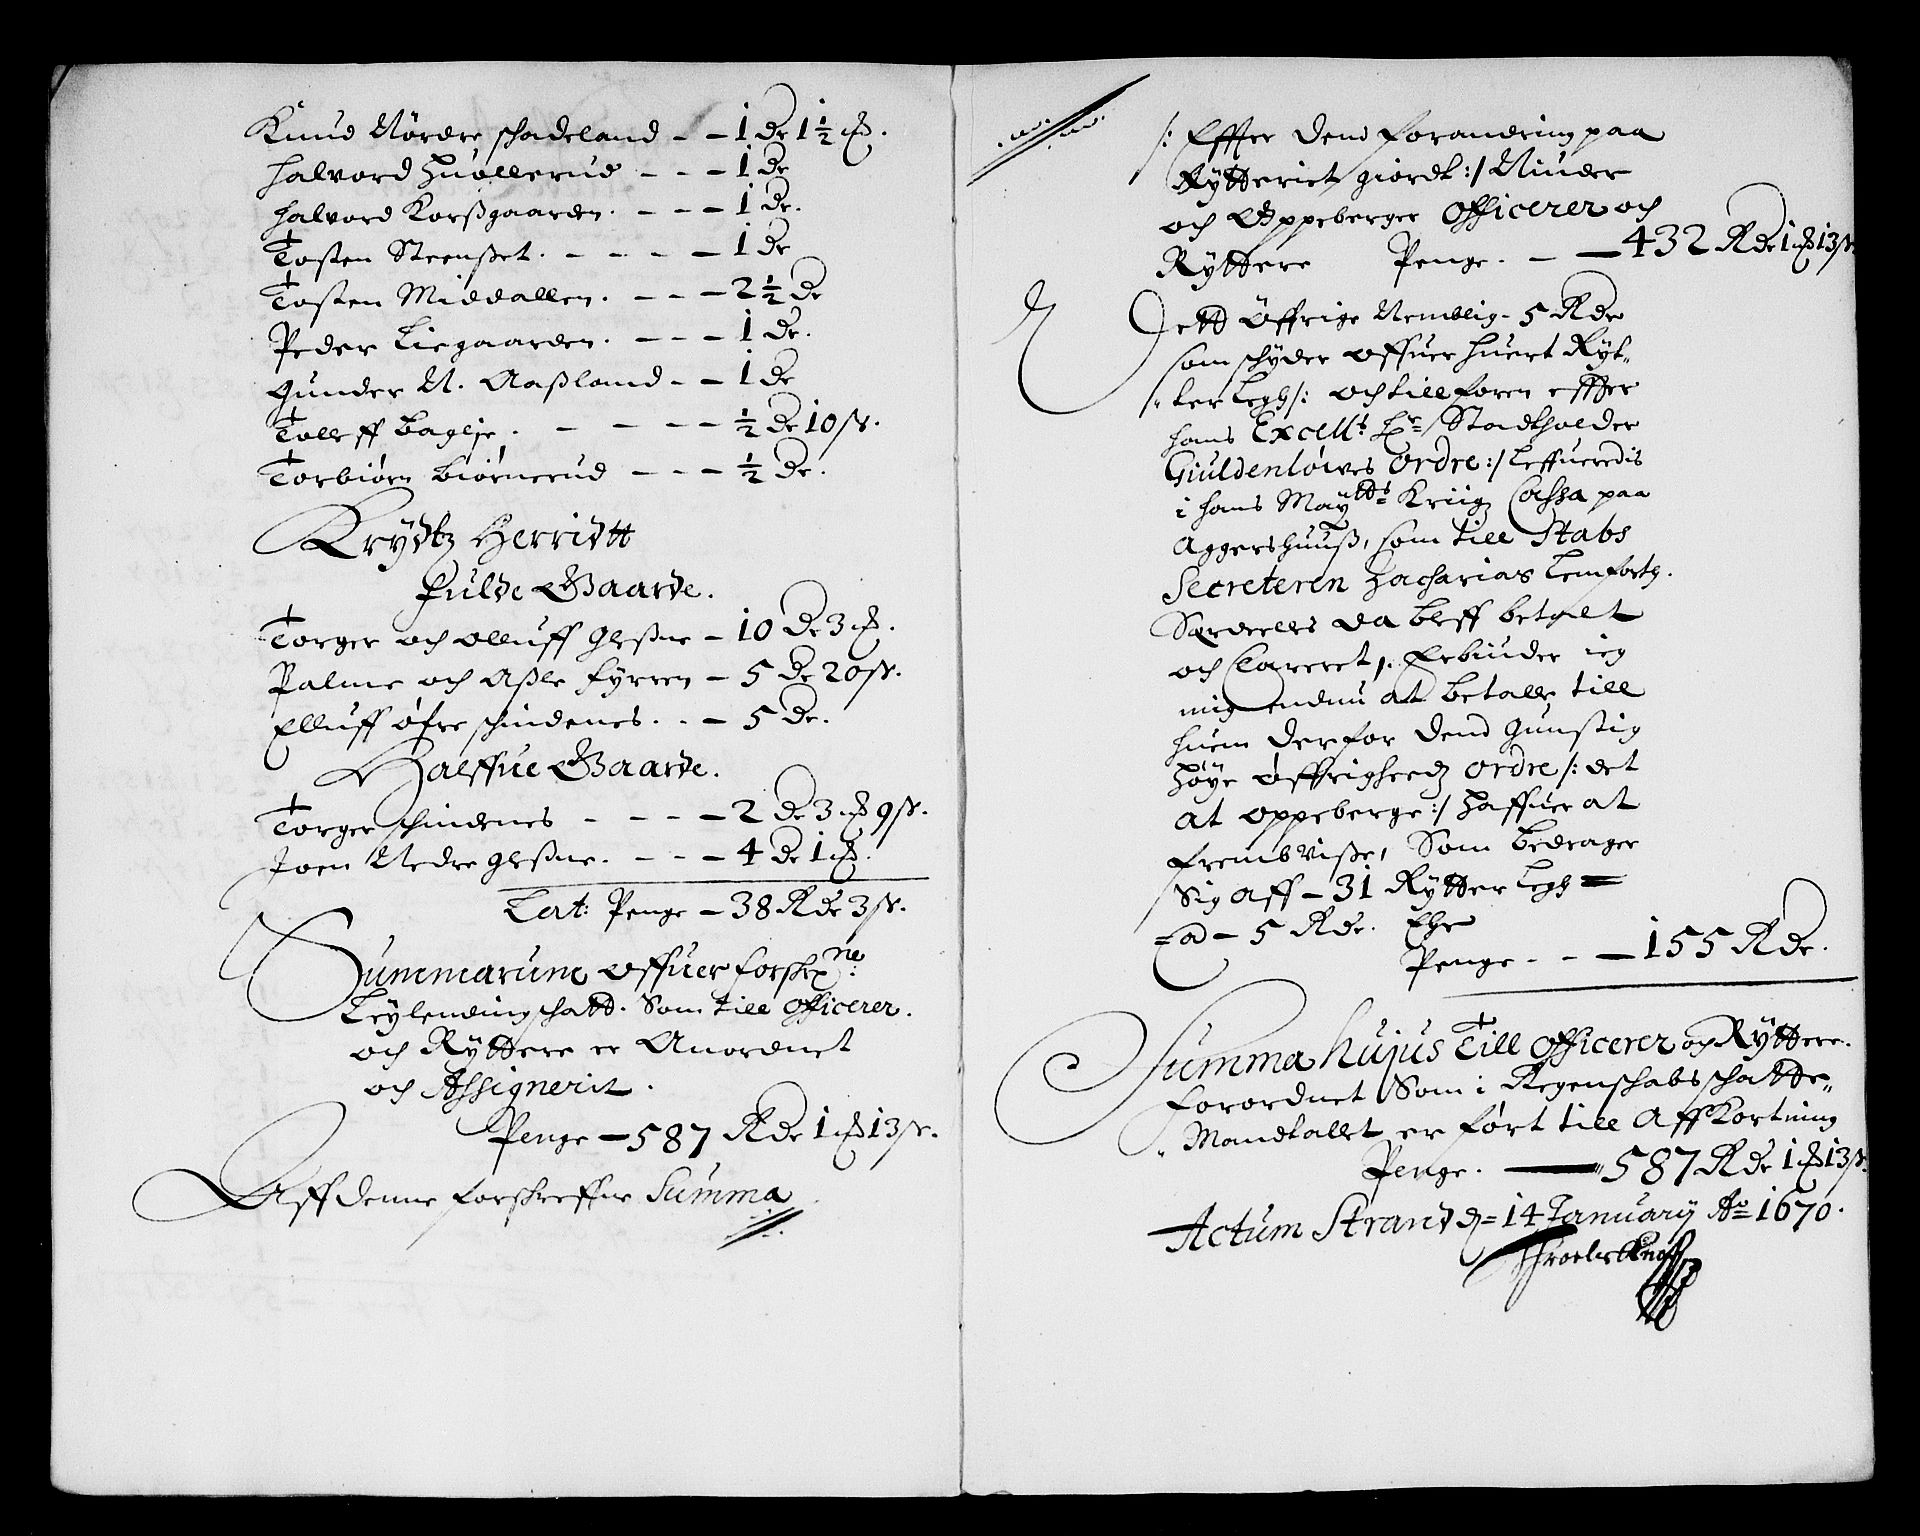 Knud Nørdre schadeland - - 1 de 1½ ʒ.
halvord Huollerud - - - 1 de
halvord Korßgaarden. - - - 1 de.
Tosten Steenset. - - - - 1 de
Tosten Middallen. - - - 2½ de
Peder Liegaarden. - - - 1 de.
Gunder N. Aaßland - - 1 de
Tolleff Baglje. - - - - ½ de 10 ß.
Torbiørn Biørnerud - - - ½ de.
Krydtz Herridtt
Fulde Gaarde.
Torger och olluff Glesne - 10 de 3 ʒ.
Palme och Aßle fyrren - 5 de 20 ß.
Elluff øfre schindenes. - - 5 de.
Halffue Gaarde.
Torger schindenes - - - - 2 de 3 ʒ 9 ß.
Joen Nedre Glesne. - - - 4 de 1 ʒ.
Lat: Penge - 38 Rde 3 ß.
Summarum offuer forskr:ne
Leylending schatt. Som till Officerer.
och Ryttere er Anordnet
och Assignerit.
Penge - 587 Rde 1 ʒ 13 ß.
Aff denne forskreffne Summa
/: Effter dend forandring paa
Rytteriet giordt :/ Niuder
och Oppeberger Officerer och
Ryttere Penge. - - 432 Rde 1 ʒ 13 ß.
Dett Øffrige Nemblig - 5 Rde
som schyder offuer huert Ryt-
ter Legh /: och tillforen effter
hans Excell:s Hr Stadtholder
Giuldenløwes Ordre :/ leffueredis
i hans Maytts Kriigz Cassa paa
Aggershuuß, som till Stabs
Secreteren Zacharias Lemforth.
Særdeelles da bleff betalt
och Clareret, Erbiuder ieg
mig endnu at betalle till
huem derfor dend gunstig
høye øffrigheedz ordre /: det
at oppeberge :/ haffuer at
frembviße, Som bedrager
Sig aff - 31 Rytter Legh
a - 5 Rde. Ehr
Penge - - - 155 Rde.
Summa hujus Till Officerer och Ryttere.
forordnet Som i Regenschabs schatte
Mandtallet er ført till Aff Kortning
Penge. - 587 Rde 1 ʒ 13 ß.
Actum Strand d= 14 January Ao 1670.